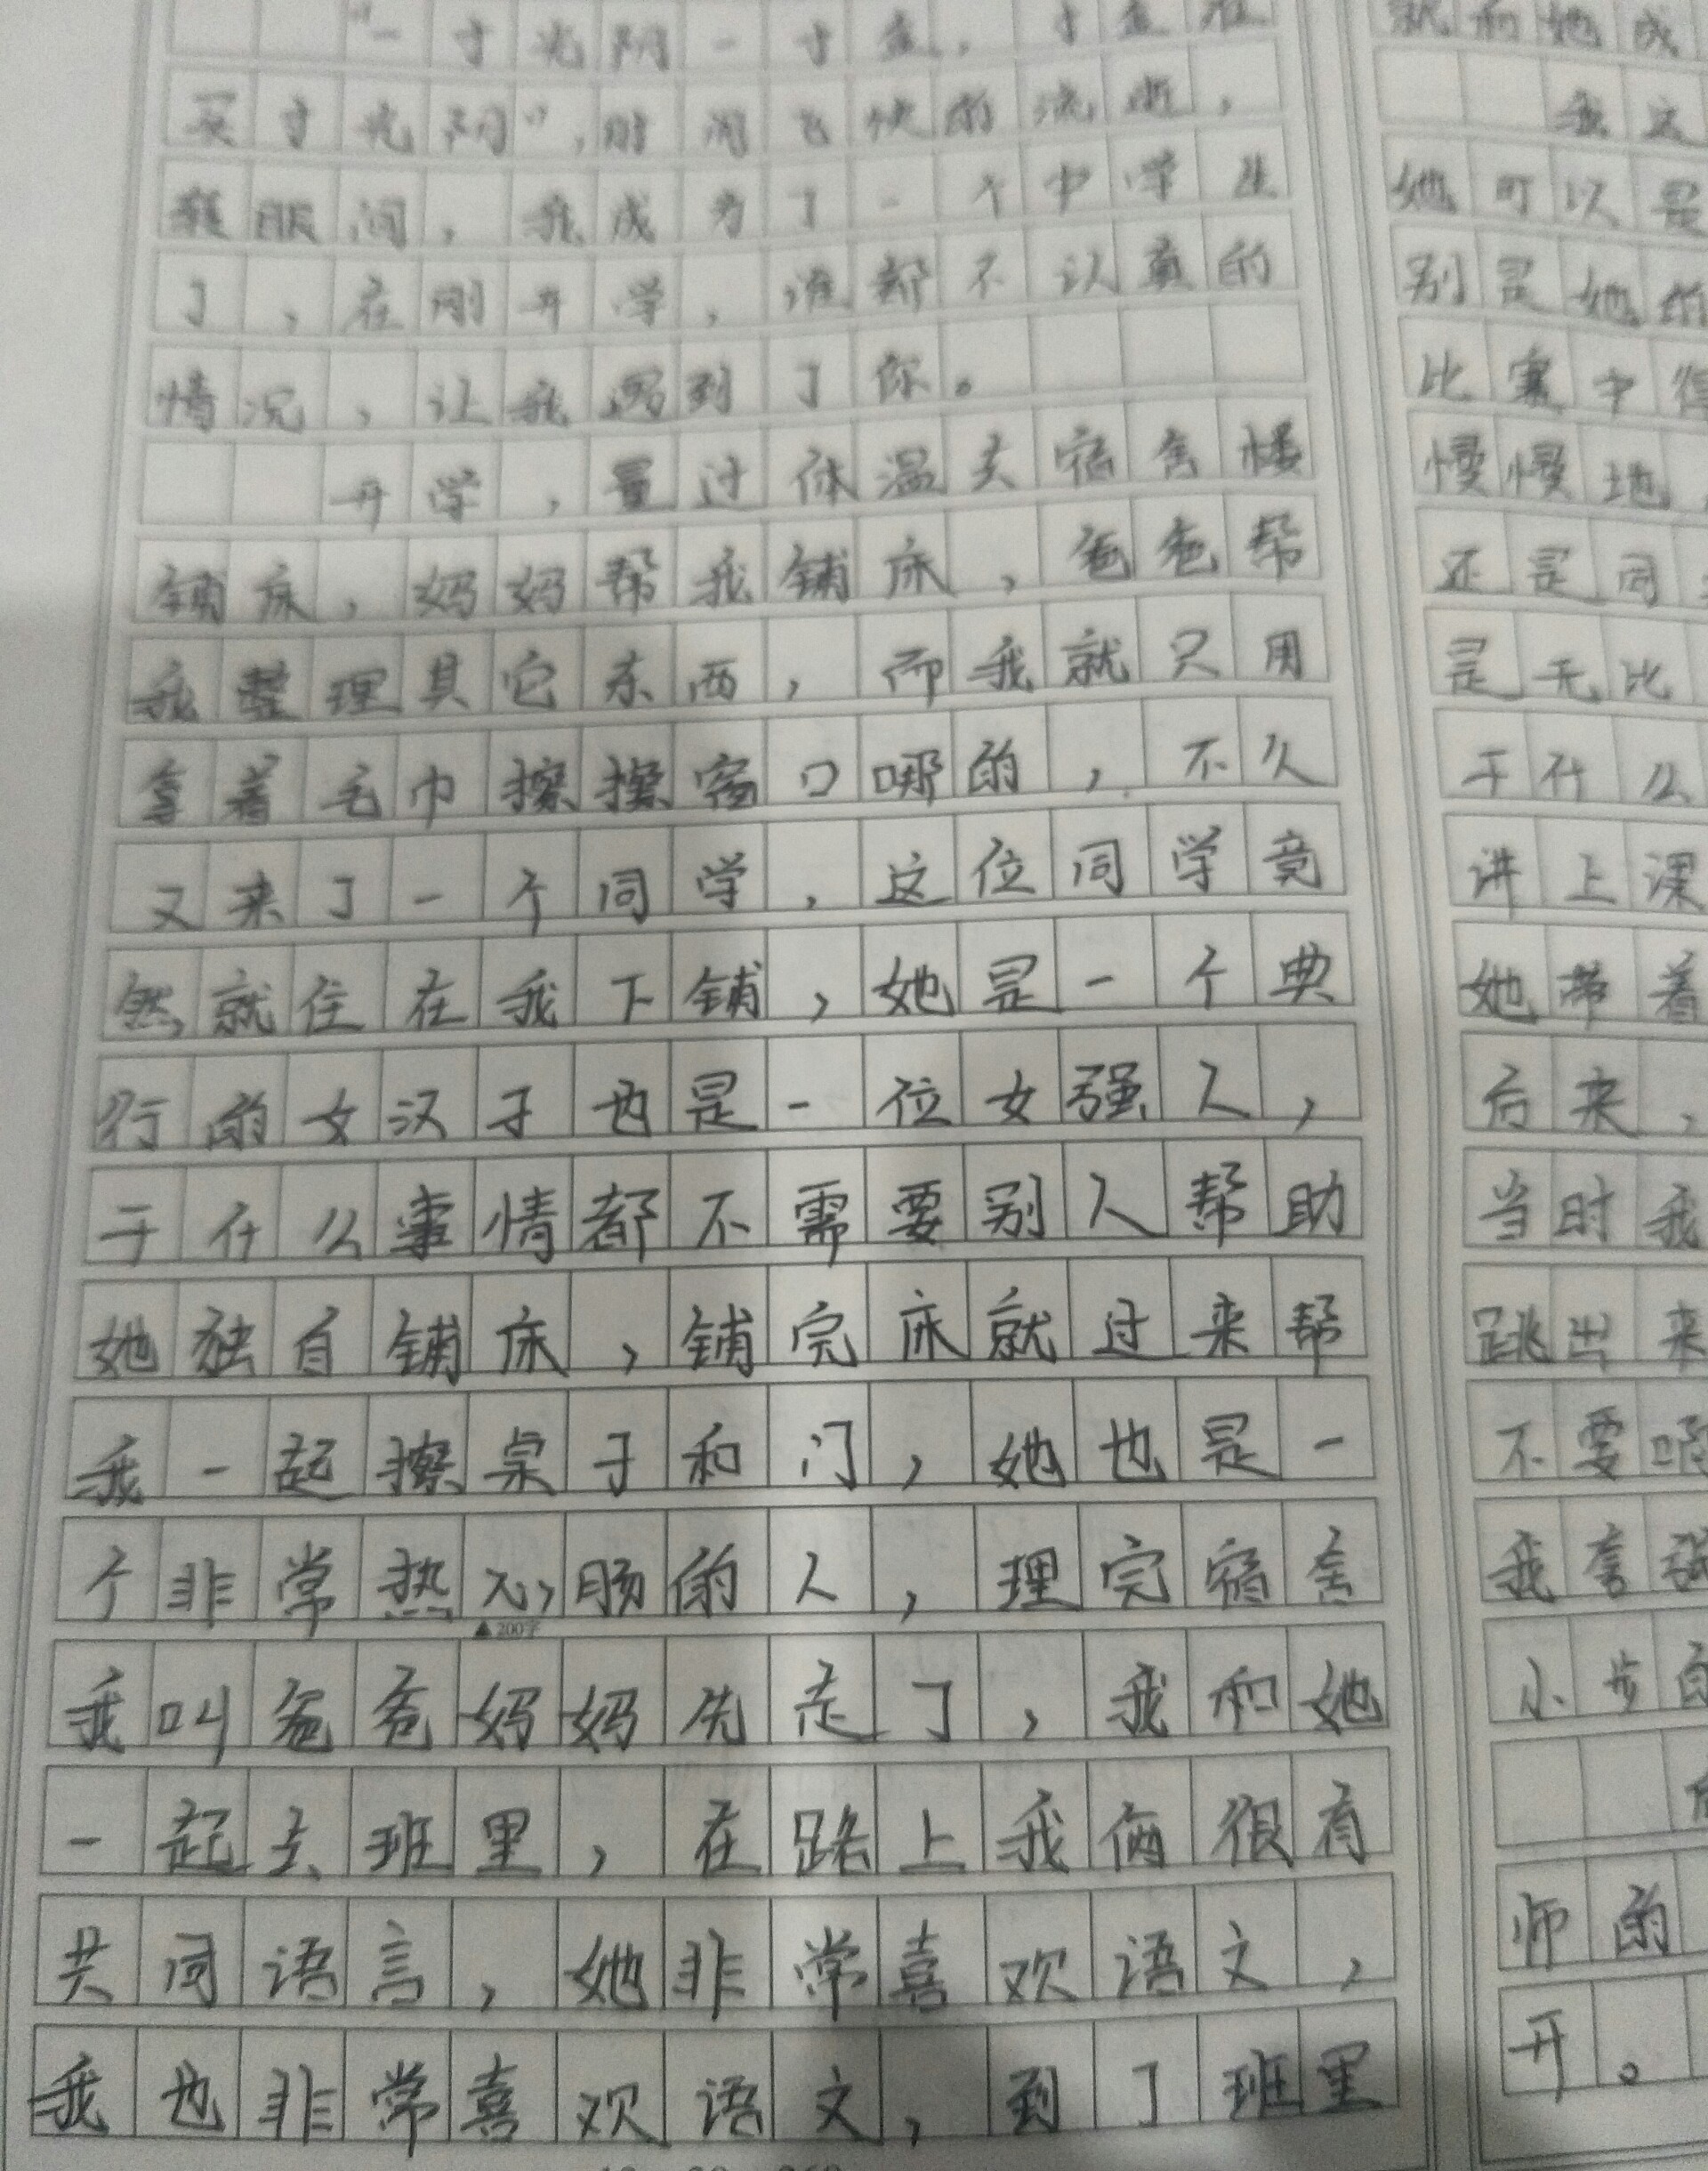 “一寸光阴一寸金，寸金难
买寸光阴”，时间飞快的流逝，
转眼间，我成为了一个中学生
了，在刚开学，谁都不认真的
情况，让我遇到了你。
开学，量过体温去宿舍楼
铺床，妈妈帮我铺床，爸爸帮
我整理其它东西，而我就只用
拿着毛巾擦擦窗口哪的，不久
又来了一个同学，这位同学竟
然就住在我下铺，她是一个典
行的女汉子也是一位女强人，
干什么事情都不需要别人帮助
她独自铺床，铺完床就过来帮
我一起擦桌子和门，她也是一
个非常热心肠的人，理完宿舍
▲200字
我叫爸爸妈妈先走了，我和她
一起去班里，在路上我俩很有
共同语言，她非常喜欢语文，
我也非常喜欢语文，到了班里
就和她成
我这
她可以是
别是她的
比赛中得
慢慢地
还是同
是无比
干什么
讲上课
她带着
后来，
当时我
跳出来
不要
我拿
小步
师的
开。